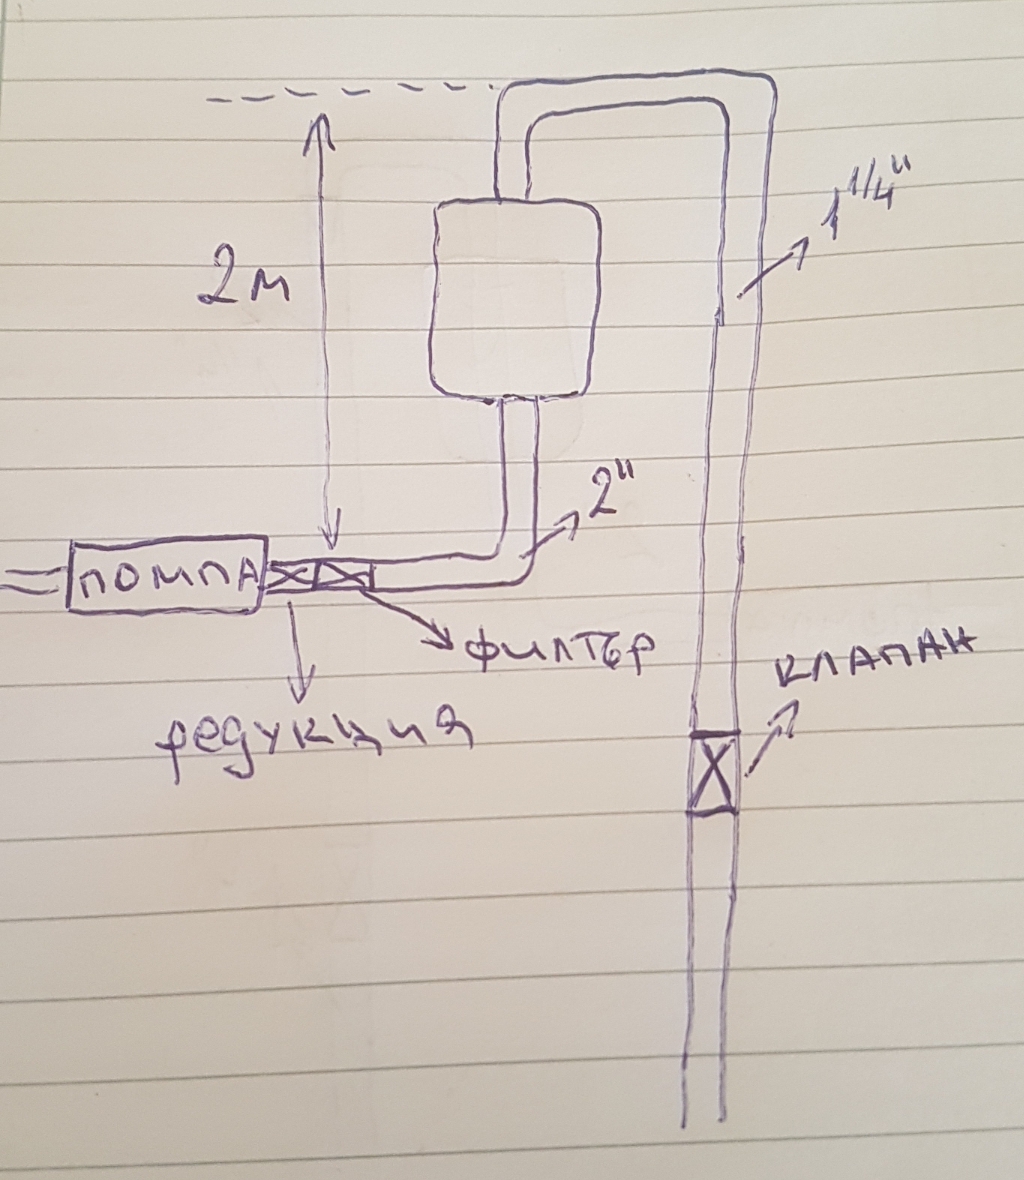 1 1/4"
2м
2"
ПОМПА
филтър
КЛАПАН
редукция